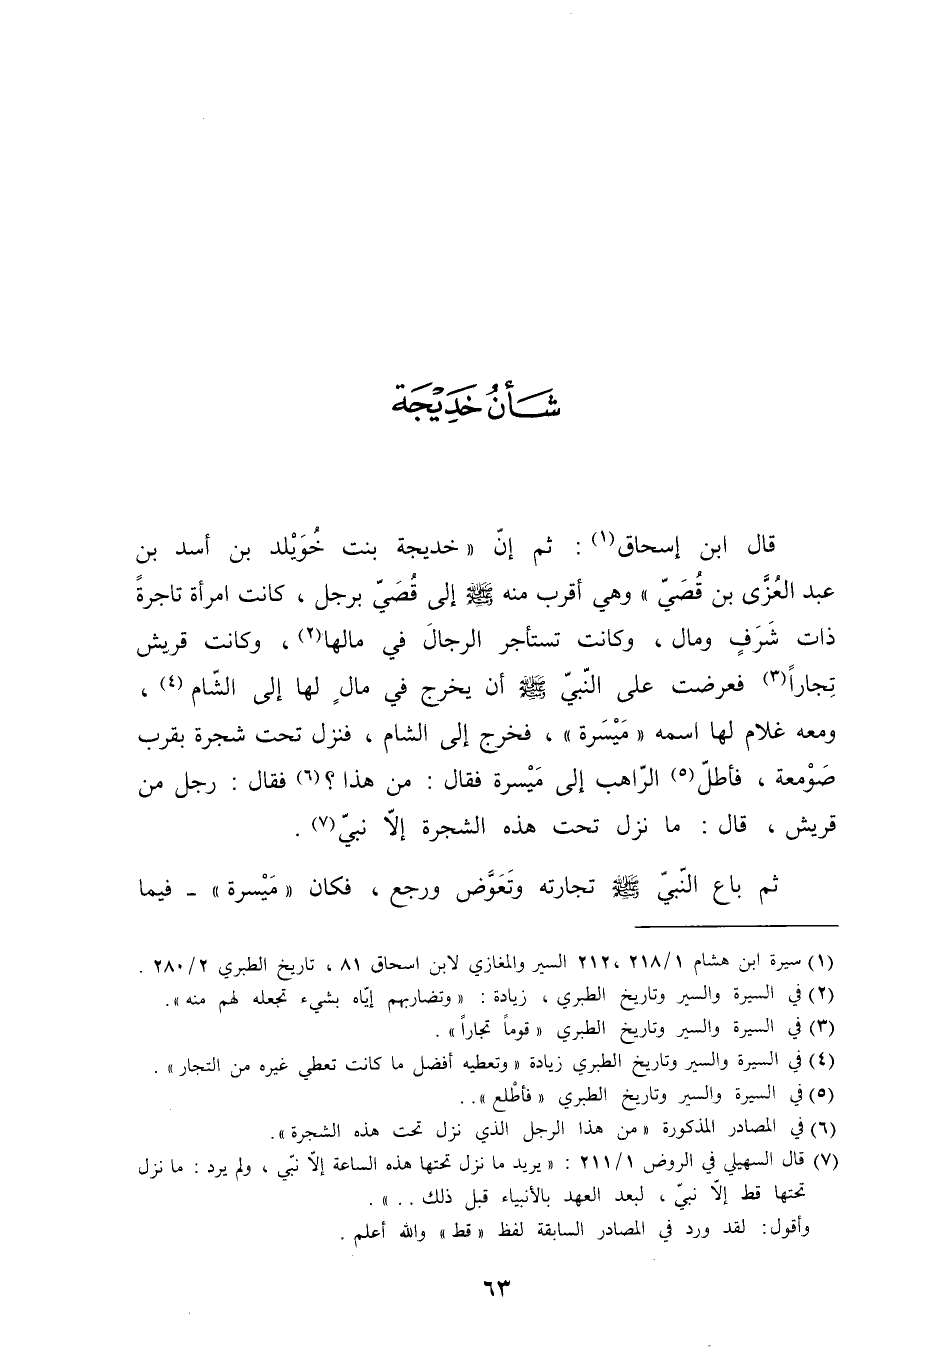 شَأنُ خَدِيْجَة
قال ابن إسحاق(١) : ثم إنّ « خديجة بنت خُوَيْلد بن أسد بن
عبد العُزَّى بن قُصَيّ » وهي أقرب منه ﷺ إلى قُصَيّ برجل ، كانت امرأة تاجرةً
ذات شَرَفٍ ومال ، وكانت تستأجر الرجالَ في مالها(٢) ، وكانت قريش
تِجاراً(٣) فعرضت على النّبيّ ﷺ أن يخرج في مالٍ لها إلى الشّام (٤) ،
ومعه غلام لها اسمه « مَيْسَرة » ، فخرج إلى الشام ، فنزل تحت شجرة بقرب
صَوْمعة ، فأطلّ(٥) الرّاهب إلى مَيْسرة فقال : من هذا ؟(٦) فقال : رجل من
قريش ، قال : ما نزل تحت هذه الشجرة إلّا نبيّ(٧) .
ثم باع النّبيّ ﷺ تجارته وتَعَوَّض ورجع ، فكان « مَيْسرة » ـ فيما
(١) سيرة ابن هشام ٢١٨/١ ،٢١٢ السير والمغازي لابن اسحاق ٨١ ، تاريخ الطبري ٢٨٠/٢ .
(٢) في السيرة والسير وتاريخ الطبري ، زيادة : « وتضاربهم إيّاه بشيء تجعله لهم منه ».
(٣) في السيرة والسير وتاريخ الطبري « قوماً تجاراً » .
(٤) في السيرة والسير وتاريخ الطبري زيادة « وتعطيه أفضل ما كانت تعطي غيره من التجار » .
(٥) في السيرة والسير وتاريخ الطبري « فأطْلع » . .
(٦) في المصادر المذكورة « من هذا الرجل الذي نزل تحت هذه الشجرة ».
(٧) قال السهيلي في الروض ٢١١/١ : « يريد ما نزل تحتها هذه الساعة إلّا نبّي ، ولم يرد : ما نزل
تحتها قط إلّا نبيّ ، لبعد العهد بالأنبياء قبل ذلك . . » .
وأقول: لقد ورد في المصادر السابقة لفظ « قط » والله أعلم .
٦٣